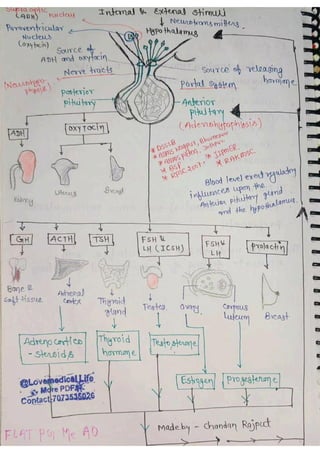 Supraoptic nucleus
(ADH)
Internal & External Stimuli
↓ Neurotransmitters
Hypothalamus
Paraventricular
Nucleus
(oxytocin)
Source of
ADH and oxytocin
Nerve tracts
Source of releasing
hormone
Portal System
Posterior
pituitary
Anterior
pituitary
(Adenohypophysis)
ADH
OXYTOCIN
Kidney
Uterus
Breast
Blood level exert regulatory
influences upon the
Anterior pituitary gland
and the hypothalamus.
GH
ACTH
TSH
FSH &
LH (ICSH)
FSH &
LH
prolactin
Bone &
Soft tissue
Adrenal
cortex
Thyroid
gland
Testes
Ovary
Corpus
luteum
Breast
Adrenocortico
- Steroids
Thyroid
hormone
Testosterone
Estrogen
Progesterone
@Lovemedical.Life
More PDF
Contact-7073535026
Made by - Chandan Rajput